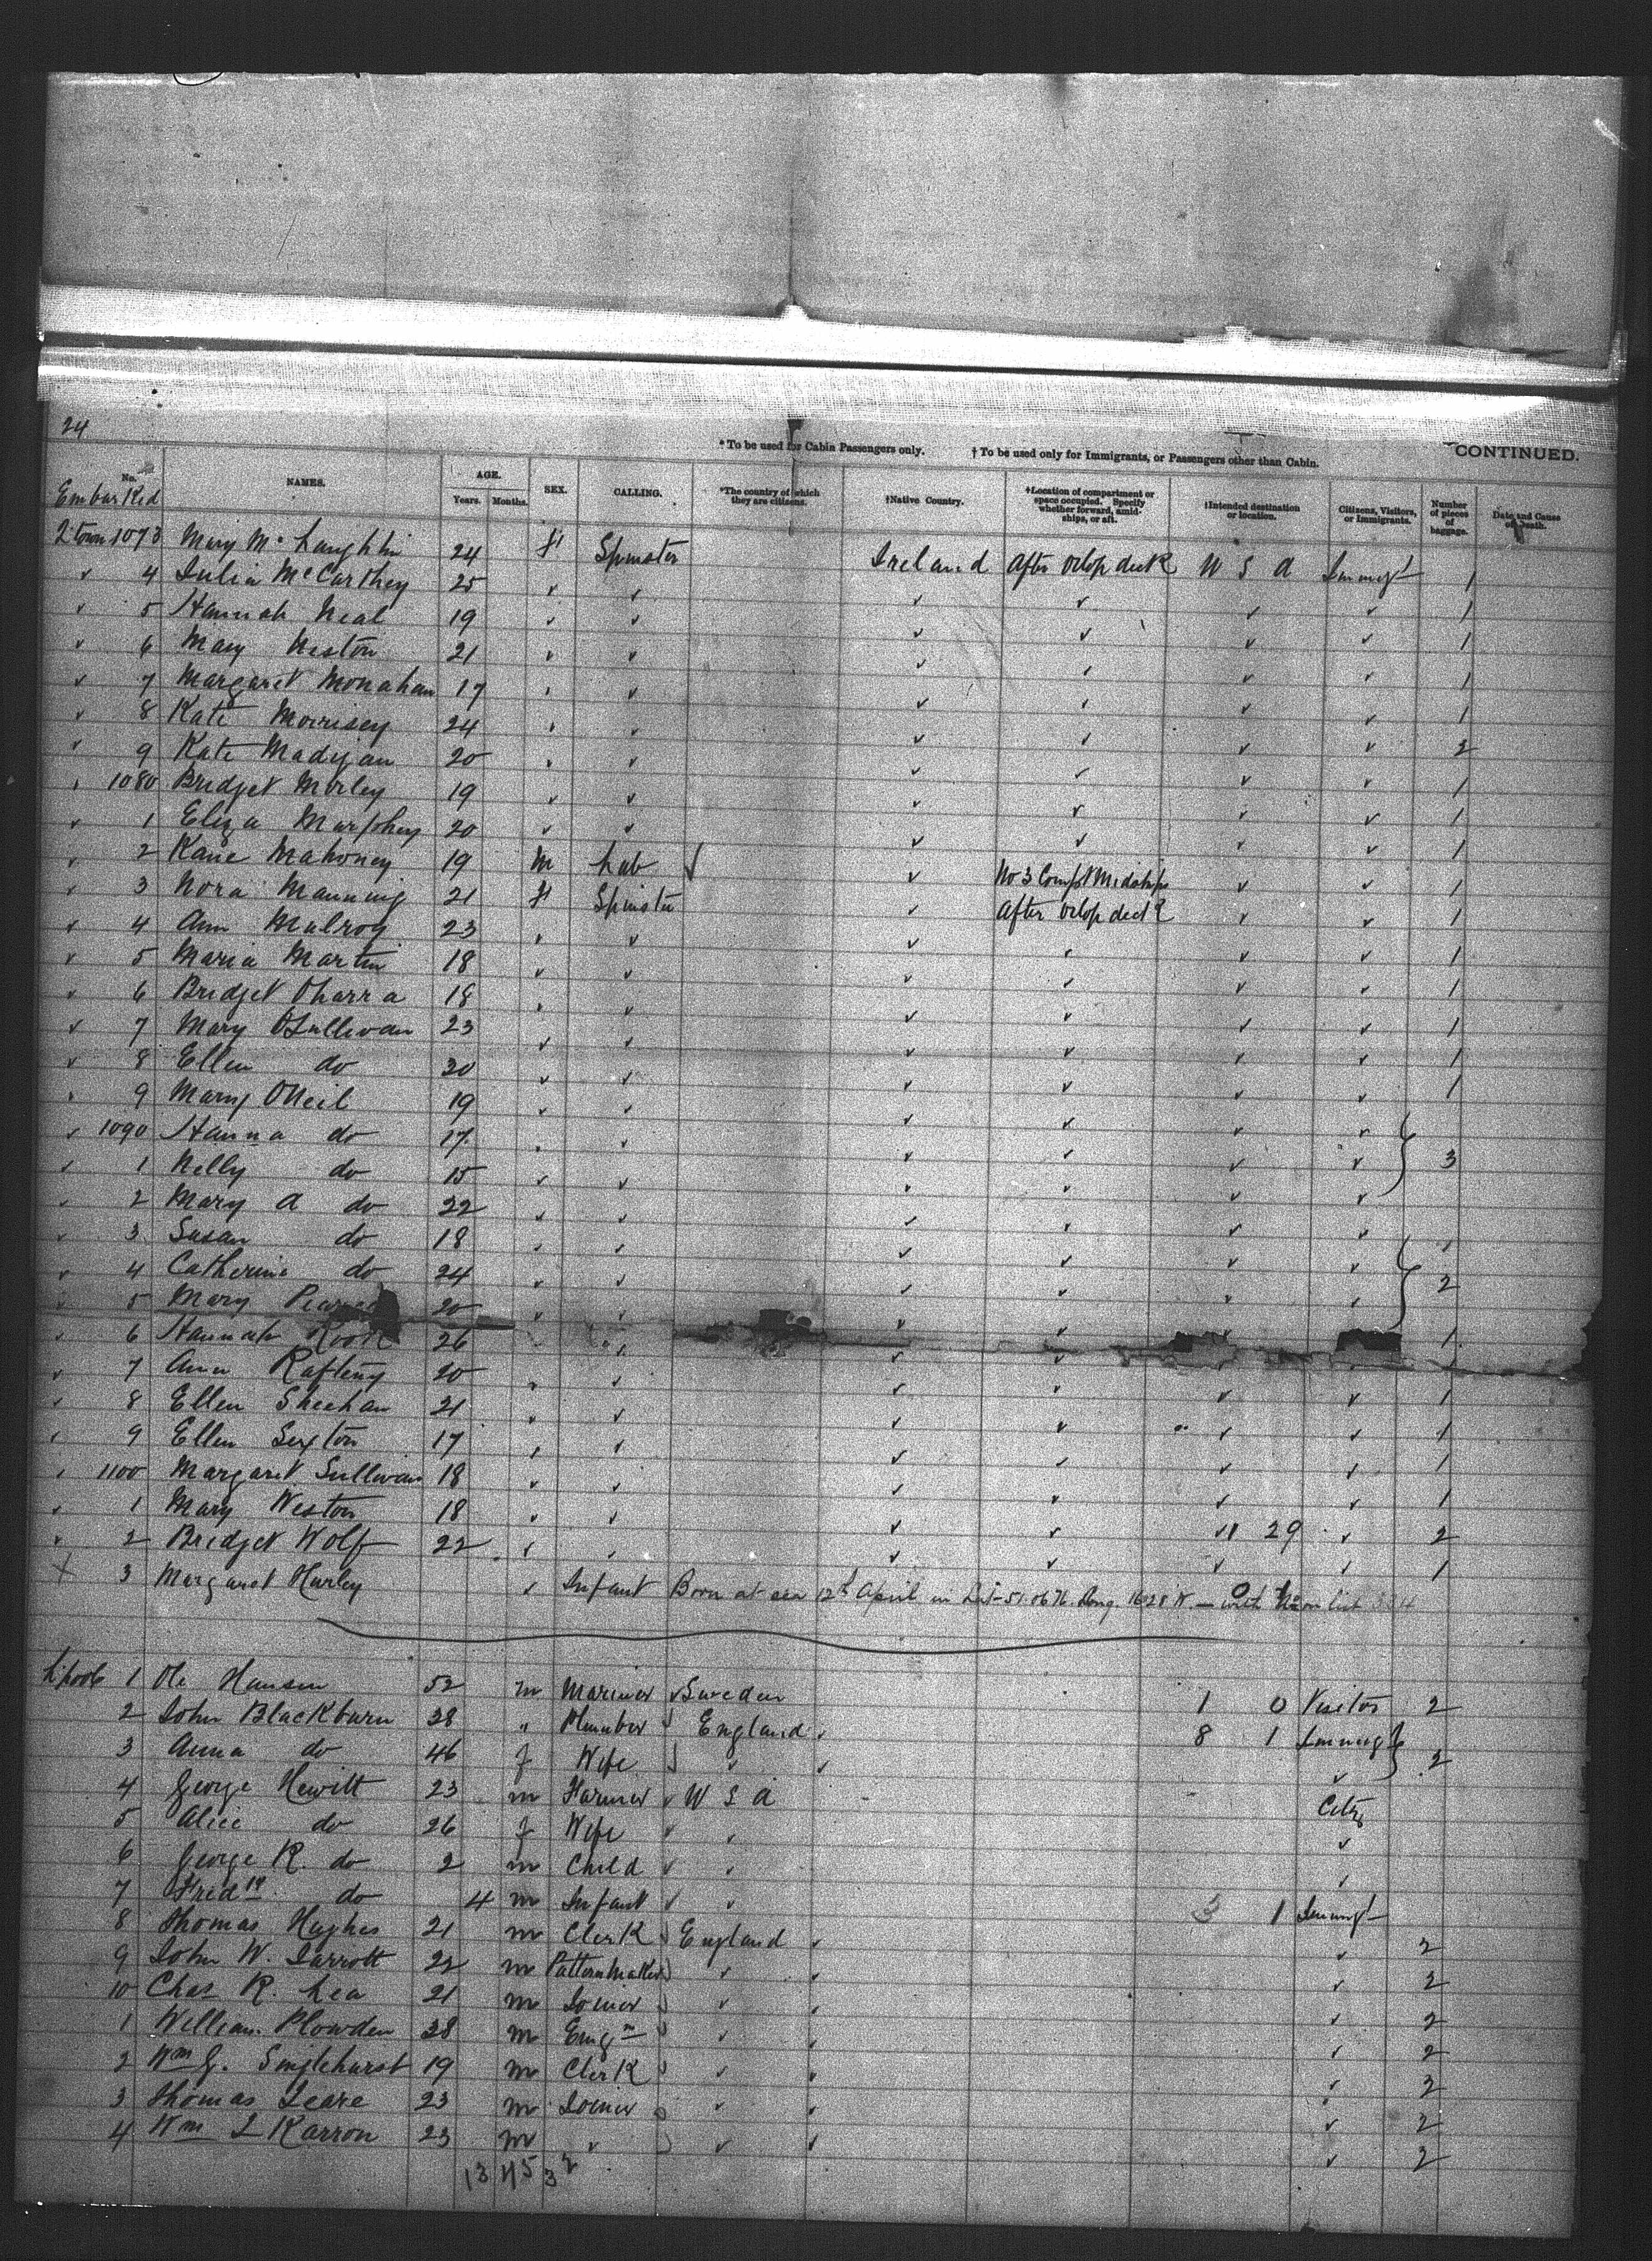 24
* To be used for Cabin Passengers only. † To be used only for Immigrants, or Passengers other than Cabin. CONTINUED.
No. NAMES. AGE. Years. Months. SEX. CALLING. *The country of which they are citizens. †Native Country. †Location of compartment or space occupied. Specify whether forward, amidships, or aft. †Intended destination or location. Citizens, Visitors, or Immigrants. Number of pieces of baggage. Date and Cause of Death.
Embarked
Q'town 1073 Mary McLaughlin 24 f Spinster Ireland After Orlop deck U S A Immigt 1
✓ 4 Julia McCarthey 25 ✓ ✓ ✓ ✓ ✓ ✓ 1
✓ 5 Hannah Neal 19 ✓ ✓ ✓ ✓ ✓ ✓ 1
✓ 6 Mary Neston 21 ✓ ✓ ✓ ✓ ✓ ✓ 1
✓ 7 Margaret Monahan 17 ✓ ✓ ✓ ✓ ✓ ✓ 1
✓ 8 Kate Morrisey 24 ✓ ✓ ✓ ✓ ✓ ✓ 2
✓ 9 Kate Madigan 20 ✓ ✓ ✓ ✓ ✓ ✓ 1
✓ 1080 Bridget Morley 19 ✓ ✓ ✓ ✓ ✓ ✓ 1
✓ 1 Eliza Murphey 20 ✓ ✓ ✓ ✓ ✓ ✓ 1
✓ 2 Kane Mahoney 19 M Lab ✓ ✓ No 3 Compt Midships ✓ ✓ 1
✓ 3 Nora Manning 21 f Spinster ✓ After Orlop deck ✓ ✓ 1
✓ 4 Ann Mulroy 23 ✓ ✓ ✓ ✓ ✓ ✓ 1
✓ 5 Maria Martin 18 ✓ ✓ ✓ ✓ ✓ ✓ 1
✓ 6 Bridget Oharra 18 ✓ ✓ ✓ ✓ ✓ ✓ 1
✓ 7 Mary OSullivan 23 ✓ ✓ ✓ ✓ ✓ ✓ 1
✓ 8 Ellen do 20 ✓ ✓ ✓ ✓ ✓ ✓ 1
✓ 9 Mary ONeil 19 ✓ ✓ ✓ ✓ ✓ ✓
✓ 1090 Hanna do 17 ✓ ✓ ✓ ✓ ✓ ✓ 3
✓ 1 Nelly do 15 ✓ ✓ ✓ ✓ ✓ ✓
✓ 2 Mary A do 22 ✓ ✓ ✓ ✓ ✓ ✓ 1
✓ 3 Susan do 18 ✓ ✓ ✓ ✓ ✓ ✓ 2
✓ 4 Catherine do 24 ✓ ✓ ✓ ✓ ✓ ✓
✓ 5 Mary 20 ✓ ✓ ✓ ✓ ✓ 1
✓ 6 Hannah 26 ✓ ✓ ✓
✓ 7 Ann Rafteny 20 ✓ ✓ ✓ ✓ ✓ ✓ 1
✓ 8 Ellen Sheehan 21 ✓ ✓ ✓ ✓ ✓ ✓ 1
✓ 9 Ellen Sexton 17 ✓ ✓ ✓ ✓ ✓ ✓ 1
✓ 1100 Margaret Sullivan 18 ✓ ✓ ✓ ✓ ✓ ✓ 1
✓ 1 Mary Weston 18 ✓ ✓ ✓ ✓ ✓ 29 ✓ 2
✓ 2 Bridget Wolf 22 ✓ ✓ ✓ ✓ ✓ ✓ 1
X 3 Margaret Hurley ✓ Infant Born at sea 12th April in Lat 51.06 N. Long. 16 28 W. — with on list
L'pool 1 Ole Hansen 52 m Mariner ✓ Sweden 1 0 Visitor 2
2 John Blackburn 38 " Plumber England ✓ 8 1 Immigt 2
3 Anna do 46 f Wife ✓ ✓ ✓
4 George Hewitt 23 m Farmer ✓ U S A Citz
5 Alice do 26 f Wife ✓ ✓ ✓
6 George R. do 2 m Child ✓ ✓ ✓
7 Fredk do 4 m Infant ✓ ✓ 3 1 Immigt
8 Thomas Hughes 21 m Clerk England ✓ ✓ 2
9 John W. Jarrott 22 m Patternmaker ✓ ✓ ✓ 2
10 Chas R. Lea 21 m Joiner ✓ ✓ ✓ 2
1 William Plowden 38 m Engn ✓ ✓ ✓ 2
2 Wm G. Singlehurst 19 m Clerk ✓ ✓ ✓ 2
3 Thomas Leare 23 m Joiner ✓ ✓ ✓ 2
4 Wm L Karron 23 m ✓ ✓ ✓ ✓ 2
13 45 32